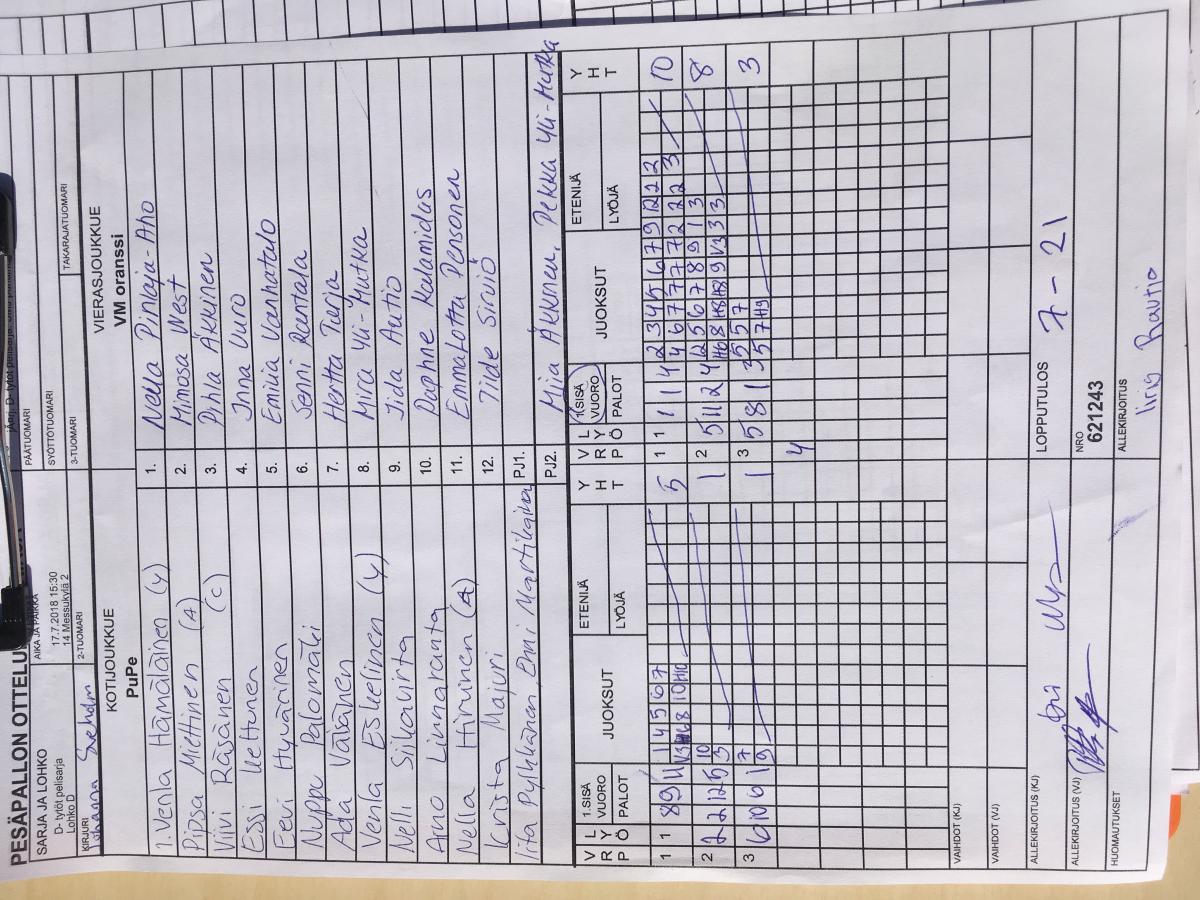 PESÄPALLON OTTELU
SARJA JA LOHKO
D- tytöt pelisarja
Lohko D
AIKA JA PAIKKA
17.7.2018 15:30
14 Messukylä 2
PÄÄTUOMARI
SYÖTTÖTUOMARI
KIRJURI
2-TUOMARI
3-TUOMARI
TAKARAJATUOMARI
KOTIJOUKKUE
PuPe
VIERASJOUKKUE
VM oranssi
1. Venla Hämäläinen (Y)
1. Nella Pinlaja-Aho
Pipsa Miettinen (A)
2. Mimosa West
Viivi Räsänen (C)
3. Pihla Äkkinen
Essi Kettunen
4. Inna Vuro
Eevi Hyvärinen
5. Emilia Vanhatalo
Nyppe Palomäki
6. Senni Rentala
Ada Väisänen
7. Hertta Turja
Venla Eskelinen (Y)
8. Mira Yli-Hutka
Nelli Siikavirta
9. Iida Autio
Aino Linnaranta
10. Daphne Kalamidas
Nella Hirvinen (A)
11. Emmalotta Personen
Krista Majuri
12. Tilde Sirviö
PJ1.
PJ2.
VRP LYÖ 1.SISÄ VUORO PALOT JUOKSUT ETENIJÄ LYÖJÄ YHT
VRP LYÖ 1.SISÄ VUORO PALOT JUOKSUT ETENIJÄ LYÖJÄ YHT
1 1 8 9 11 1 4 5 6 7 5
1 1 1 1 4 2 3 4 5 6 7 9 1 2 2 2 10
2 2 2 12 5 10 1
2 5 11 2 4 12 5 6 7 8 9 1 3 8
3 6 10 6 1 7 1
3 5 8 1 3 5 5 7 3
4
VAIHDOT (KJ)
VAIHDOT (VJ)
ALLEKIRJOITUS (KJ)
LOPPUTULOS 7 - 21
ALLEKIRJOITUS (VJ)
NRO
621243
HUOMAUTUKSET
ALLEKIRJOITUS
Iiris Rautio